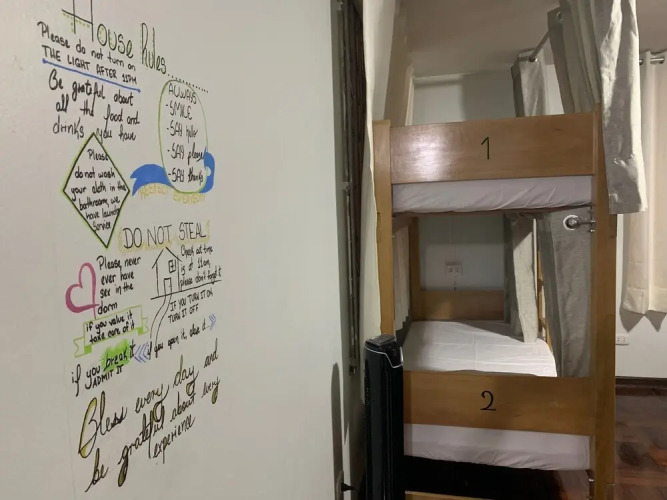 House Rules..........
Please do not turn on
THE LIGHT AFTER 11PM
Be grateful about
all the food and
drinks you have
ALWAYS
-SMILE
-SAY hello
-SAY please
-SAY thanks
RESPECT EVERYBODY
Please
do not wash
your cloth in the
bathroom, we
have laundry
service
DO NOT STEAL
Please, never
ever have
sex in the
dorm
Check out time
is at 11am,
please don't forget it
IF YOU TURN IT ON
TURN IT OFF
if you value it
take care of it
if you open it, close it
if you break it
ADMIT IT
Bless every day and
be grateful about every
experience
1
2